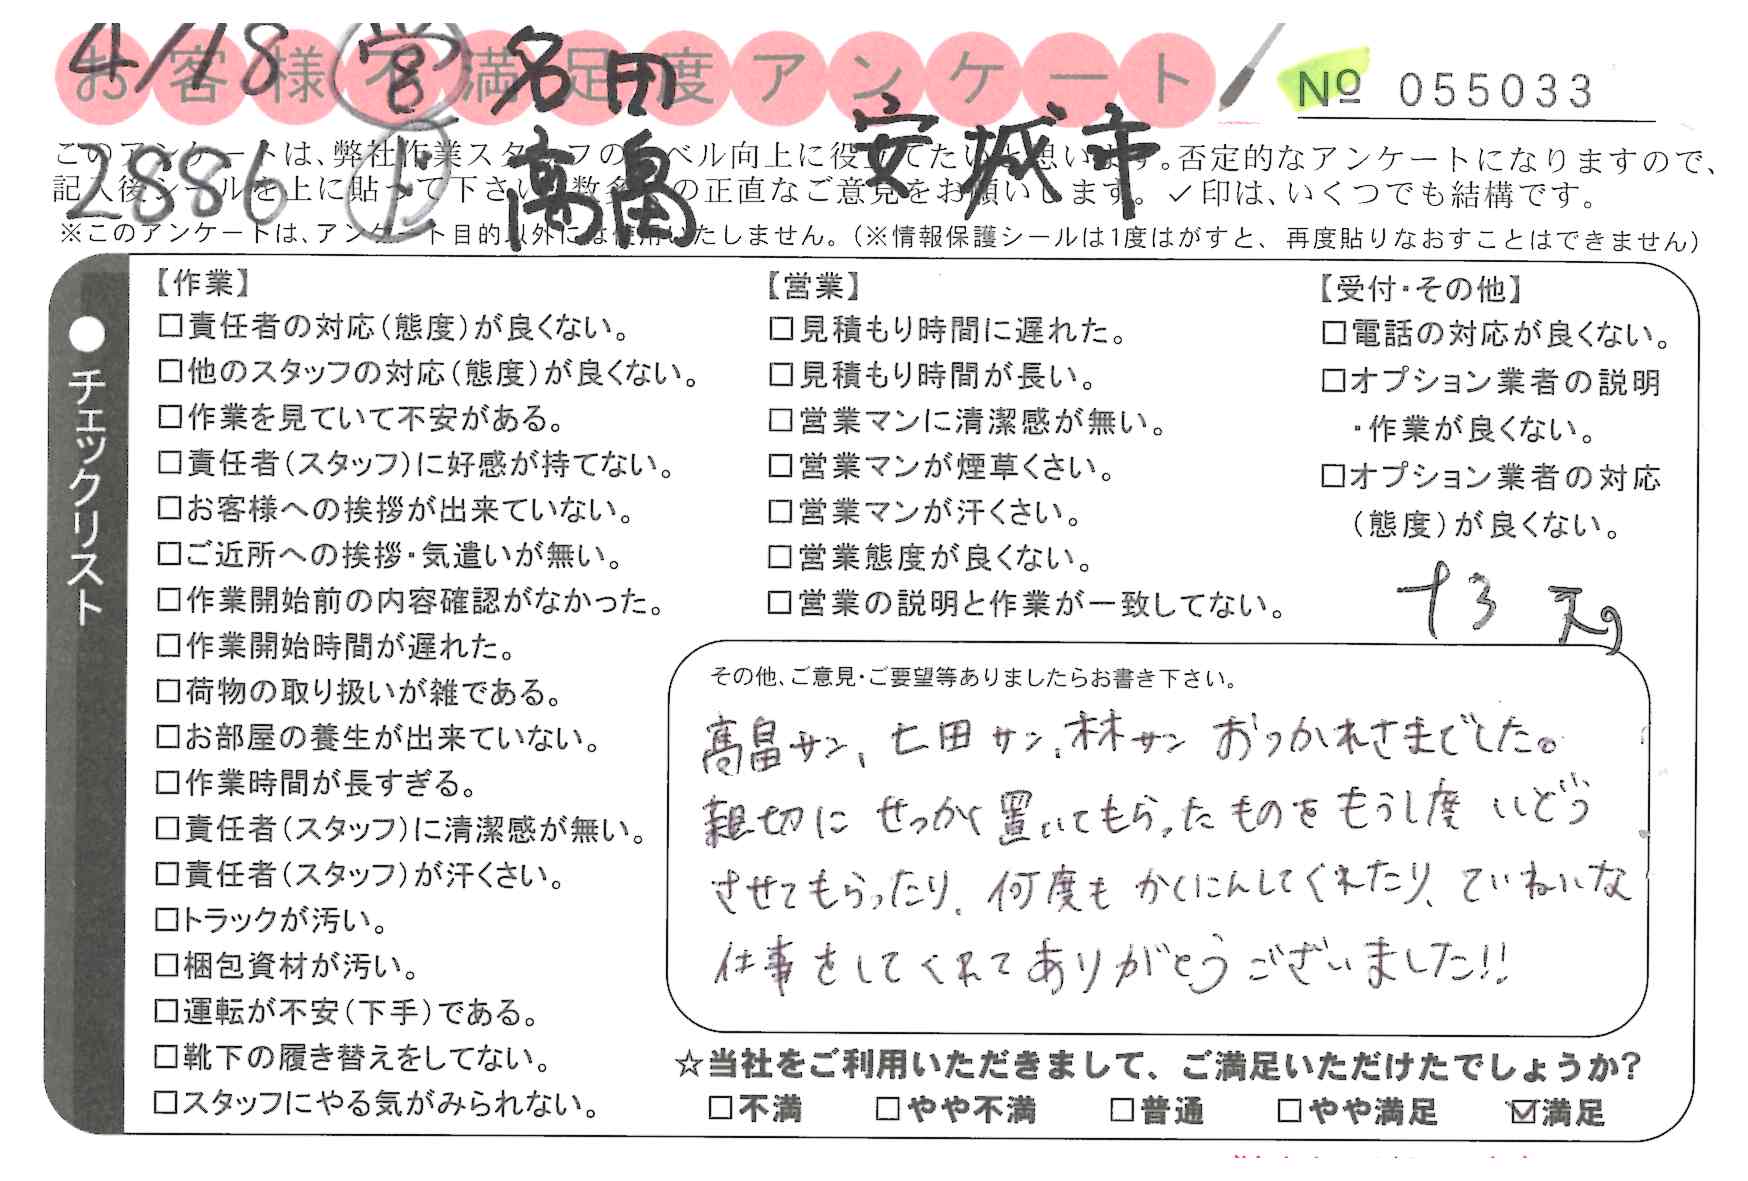 4/18 営 名田
お客様不満足度アンケート
№ 055033
2886 高畠 安城市
このアンケートは、弊社作業スタッフのレベル向上に役立てたいと思います。否定的なアンケートになりますので、
記入後シールを上に貼って下さい。数多くの正直なご意見をお願いします。✓印は、いくつでも結構です。
※このアンケートは、アンケート目的以外には使用いたしません。（※情報保護シールは1度はがすと、再度貼りなおすことはできません）
●チェックリスト
【作業】
□責任者の対応（態度）が良くない。
□他のスタッフの対応（態度）が良くない。
□作業を見ていて不安がある。
□責任者（スタッフ）に好感が持てない。
□お客様への挨拶が出来ていない。
□ご近所への挨拶・気遣いが無い。
□作業開始前の内容確認がなかった。
□作業開始時間が遅れた。
□荷物の取り扱いが雑である。
□お部屋の養生が出来ていない。
□作業時間が長すぎる。
□責任者（スタッフ）に清潔感が無い。
□責任者（スタッフ）が汗くさい。
□トラックが汚い。
□梱包資材が汚い。
□運転が不安（下手）である。
□靴下の履き替えをしてない。
□スタッフにやる気がみられない。
【営業】
□見積もり時間に遅れた。
□見積もり時間が長い。
□営業マンに清潔感が無い。
□営業マンが煙草くさい。
□営業マンが汗くさい。
□営業態度が良くない。
□営業の説明と作業が一致してない。
【受付・その他】
□電話の対応が良くない。
□オプション業者の説明
・作業が良くない。
□オプション業者の対応
（態度）が良くない。
その他、ご意見・ご要望等ありましたらお書き下さい。
高畠サン、七田サン、林サン おつかれさまでした。
親切に せっかく置いてもらったものをもう1度 いどう
させてもらったり、何度も かくにんしてくれたり、ていねいな
仕事をしてくれてありがとうございました!!
☆当社をご利用いただきまして、ご満足いただけたでしょうか?
□不満 □やや不満 □普通 □やや満足 ☑満足